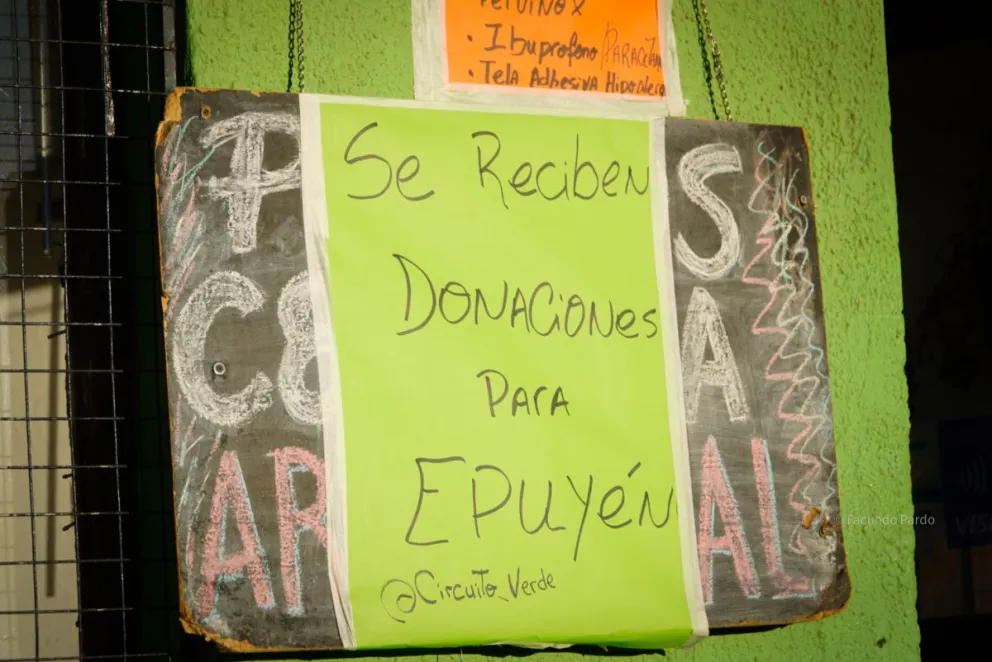 Pervinox
• Ibuprofeno/Paracetam
• Tela Adhesiva Hipoalerg
Se Reciben
Donaciones
Para
Epuyén
@Circuito_Verde
P S
C A
AR AL
Facundo Pardo
VISA